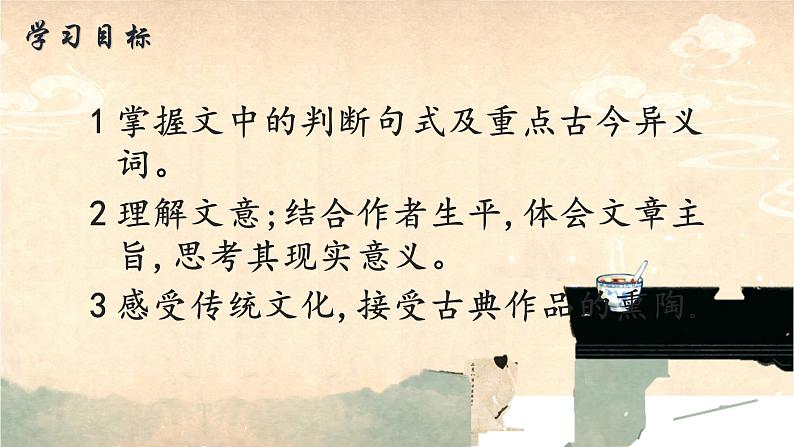 学习目标
1 掌握文中的判断句式及重点古今异义
词。
2 理解文意;结合作者生平,体会文章主
旨,思考其现实意义。
3 感受传统文化,接受古典作品的熏陶.